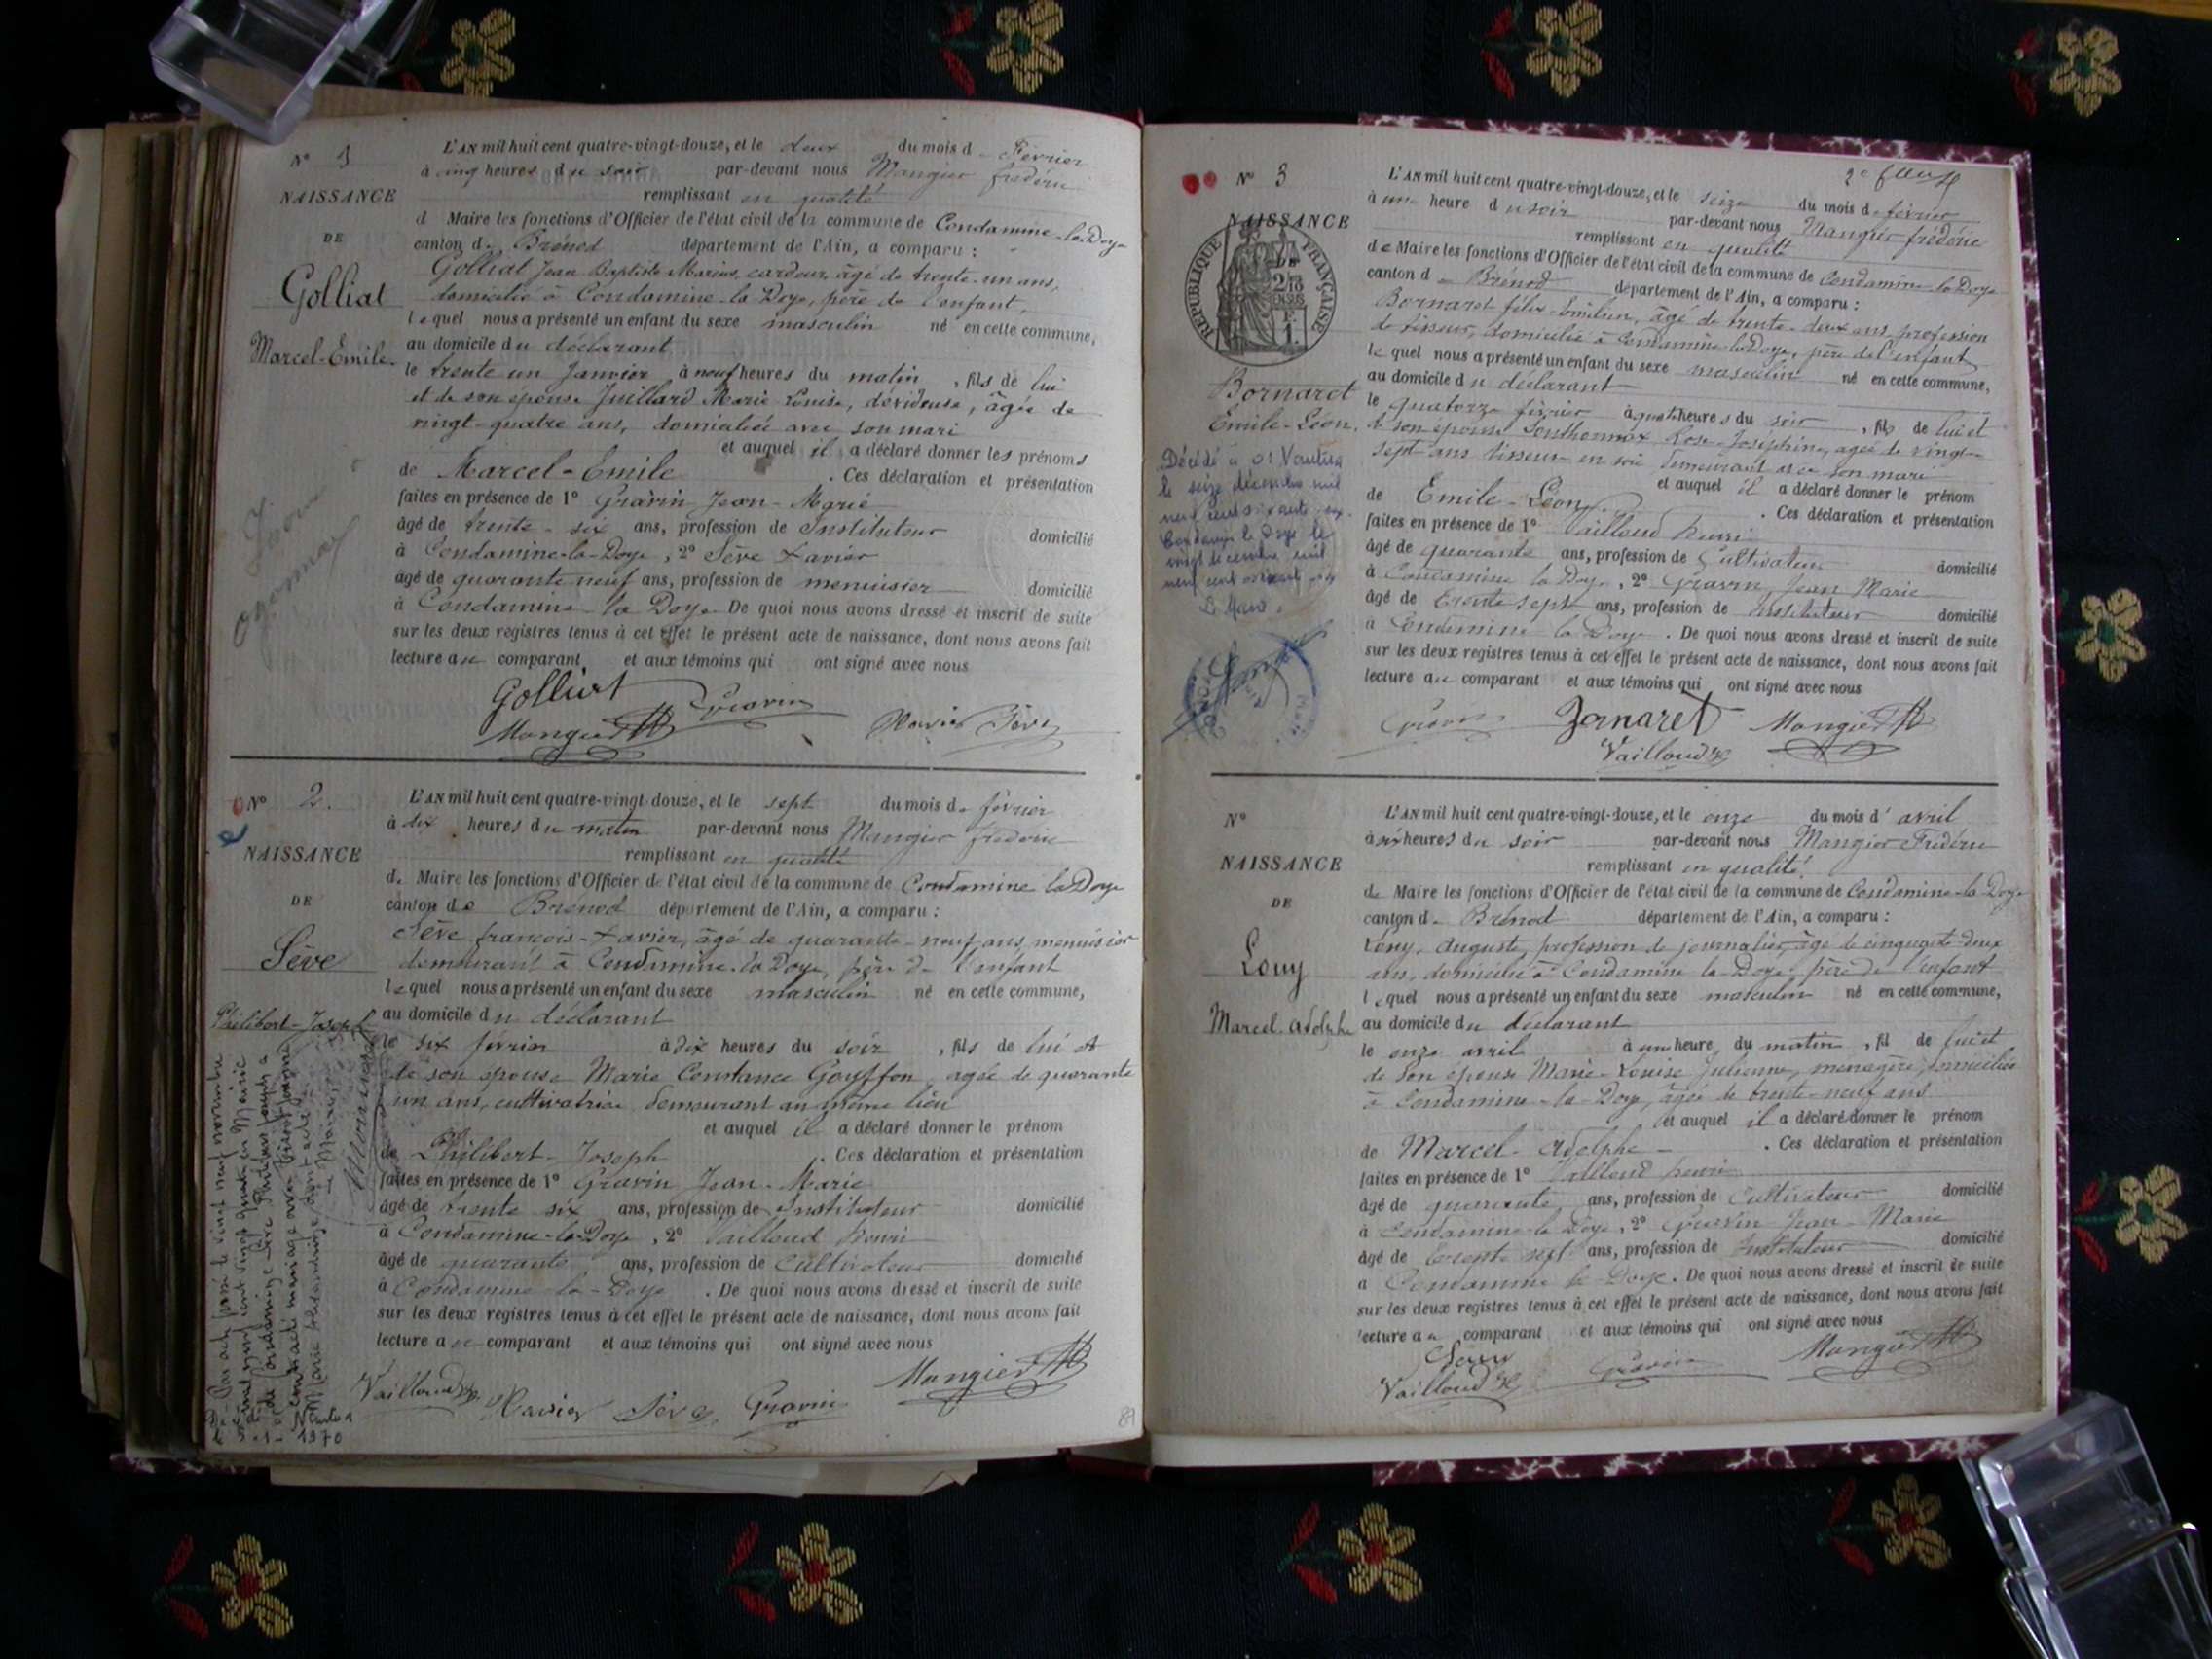 N° 1
NAISSANCE
DE
Golliat
Marcel-Emile
L'AN mil huit cent quatre-vingt-douze, et le deux du mois de Février
à cinq heures du soir par-devant nous Mangier frédéric
remplissant en qualité
de Maire les fonctions d'Officier de l'état civil de la commune de Condamine-la-Doye
canton de Brénod département de l'Ain, a comparu :
Golliat Jean Baptiste Marius, cardeur, âgé de trente-un ans,
domicilié à Condamine-la Doye, père de l'enfant,
lequel nous a présenté un enfant du sexe masculin né en cette commune,
au domicile du déclarant
le trente un Janvier à neuf heures du matin, fils de lui
et de son épouse Juillard Marie Louise, dévideuse, âgée de
vingt-quatre ans, domiciliée avec son mari
et auquel il a déclaré donner les prénoms
de Marcel-Emile. Ces déclaration et présentation
faites en présence de 1° Gravin Jean-Marie
âgé de trente-six ans, profession de Instituteur domicilié
à Condamine-la-Doye, 2° Sève Xavier
âgé de quarante neuf ans, profession de menuisier domicilié
à Condamine-la Doye. De quoi nous avons dressé et inscrit de suite
sur les deux registres tenus à cet effet le présent acte de naissance, dont nous avons fait
lecture au comparant et aux témoins qui ont signé avec nous
Golliat Gravin
Mangier Xavier Sève
N° 2.
NAISSANCE
DE
Sève
Philibert-Joseph
L'AN mil huit cent quatre-vingt-douze, et le sept du mois de février
à dix heures du matin par-devant nous Mangier frédéric
remplissant en qualité
de Maire les fonctions d'Officier de l'état civil de la commune de Condamine la Doye
canton de Brenod département de l'Ain, a comparu :
Sève françois-Xavier, âgé de quarante-neuf ans, menuisier
demeurant à Condamine-la Doye, père de l'enfant
lequel nous a présenté un enfant du sexe masculin né en cette commune,
au domicile du déclarant
le six février à dix heures du soir, fils de lui et
de son épouse Marie Constance Gouffon, agée de quarante
un ans, cultivatrice demeurant au même lieu
et auquel il a déclaré donner le prénom
de Philibert-Joseph. Ces déclaration et présentation
faites en présence de 1° Gravin Jean-Marie
âgé de trente six ans, profession de Instituteur domicilié
à Condamine-la-Doye, 2° Vailloud henri
âgé de quarante ans, profession de Cultivateur domicilié
à Condamine la-Doye. De quoi nous avons dressé et inscrit de suite
sur les deux registres tenus à cet effet le présent acte de naissance, dont nous avons fait
lecture au comparant et aux témoins qui ont signé avec nous
Vailloud Xavier Sève Gravin Mangier
1970
89
2e feuille
N° 3
NAISSANCE
DE
REPUBLIQUE FRANÇAISE
Bornaret
Emile-Léon.
Décédé à
le seize décembre mil
neuf cent soixante-six.
Condamine la Doye le
vingt décembre mil
neuf cent soixante six
Le Maire
L'AN mil huit cent quatre-vingt-douze, et le seize du mois de février
à une heure du soir par-devant nous Mangier frédéric
remplissant en qualité
de Maire les fonctions d'Officier de l'état civil de la commune de Condamine la Doye
canton de Brénod département de l'Ain, a comparu :
Bornaret félix-Emilien, âgé de trente-deux ans, profession
de tisseur, domicilié à Condamine la Doye, père de l'enfant
lequel nous a présenté un enfant du sexe masculin né en cette commune,
au domicile du déclarant
le quatorze février à quatre heures du soir, fils de lui et
de son épouse Southonnax Rose-Joséphine, agée de vingt-
sept ans tisseuse en soie demeurant avec son mari
et auquel il a déclaré donner le prénom
de Emile-Léon. Ces déclaration et présentation
faites en présence de 1° Vailloud henri
âgé de quarante ans, profession de Cultivateur domicilié
à Condamine la Doye, 2° Gravin Jean Marie
âgé de trente sept ans, profession de Instituteur domicilié
à Condamine la Doye. De quoi nous avons dressé et inscrit de suite
sur les deux registres tenus à cet effet le présent acte de naissance, dont nous avons fait
lecture au comparant et aux témoins qui ont signé avec nous
Gravin Bornaret Mangier
Vailloud
N°
NAISSANCE
DE
Louy
Marcel-Adolphe
L'AN mil huit cent quatre-vingt-douze, et le onze du mois d'avril
à six heures du soir par-devant nous Mangier Frédéric
remplissant en qualité
de Maire les fonctions d'Officier de l'état civil de la commune de Condamine-la-Doye
canton de Brénod département de l'Ain, a comparu :
Louy, Auguste, profession de journalier, âgé de cinquante-deux
ans, domicilié à Condamine la-Doye, père de l'enfant
lequel nous a présenté un enfant du sexe masculin né en cette commune,
au domicile du déclarant
le onze avril à une heure du matin, fil de lui et
de son épouse Marie-Louise Julienne, ménagère, domiciliée
à Condamine-la-Doye, âgée de trente-neuf ans
et auquel il a déclaré donner le prénom
de Marcel-Adolphe. Ces déclaration et présentation
faites en présence de 1° Vailloud henri
âgé de quarante ans, profession de Cultivateur domicilié
à Condamine-la Doye, 2° Gravin Jean-Marie
âgé de trente sept ans, profession de Instituteur domicilié
à Condamine la-Doye. De quoi nous avons dressé et inscrit de suite
sur les deux registres tenus à cet effet le présent acte de naissance, dont nous avons fait
lecture au comparant et aux témoins qui ont signé avec nous
Louy Gravin Mangier
Vailloud